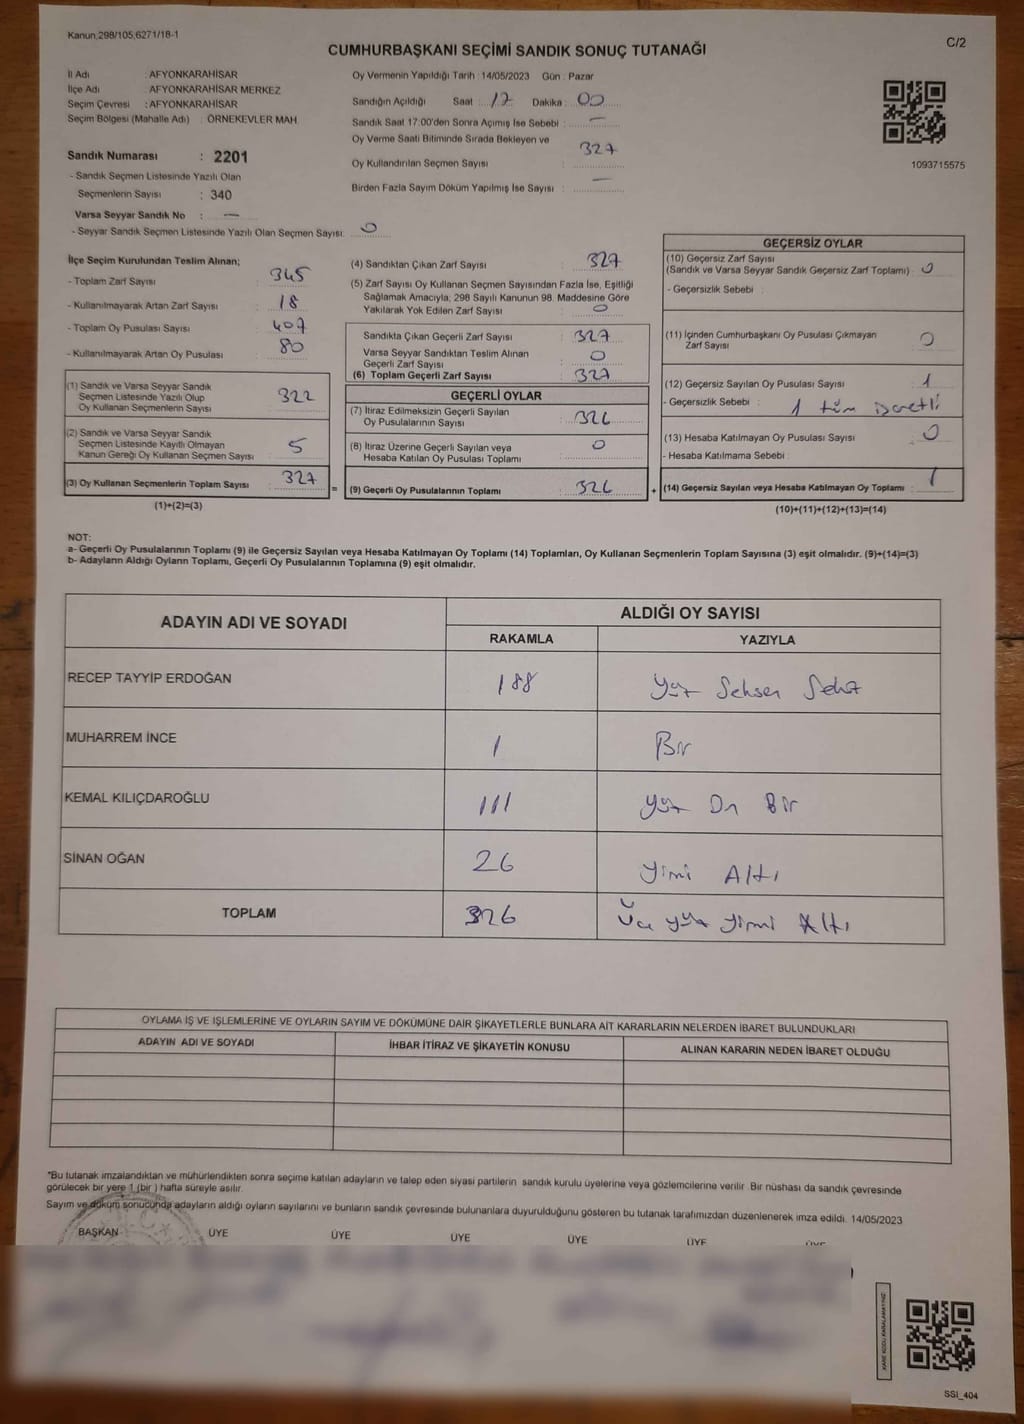 Kanun,298/105,6271/18-1
C/2
CUMHURBAŞKANI SEÇİMİ SANDIK SONUÇ TUTANAĞI
İl Adı : AFYONKARAHİSAR
İlçe Adı : AFYONKARAHİSAR MERKEZ
Seçim Çevresi : AFYONKARAHİSAR
Seçim Bölgesi (Mahalle Adı) : ÖRNEKEVLER MAH.
Sandık Numarası : 2201
- Sandık Seçmen Listesinde Yazılı Olan
Seçmenlerin Sayısı : 340
Varsa Seyyar Sandık No : —
- Seyyar Sandık Seçmen Listesinde Yazılı Olan Seçmen Sayısı: 0
Oy Vermenin Yapıldığı Tarih : 14/05/2023 Gün : Pazar
Sandığın Açıldığı Saat : 17 Dakika : 00
Sandık Saat 17:00'den Sonra Açımış İse Sebebi : —
Oy Verme Saati Bitiminde Sırada Bekleyen ve
Oy Kullandırılan Seçmen Sayısı : 327
Birden Fazla Sayım Döküm Yapılmış İse Sayısı : —
1093715575
İlçe Seçim Kurulundan Teslim Alınan;
- Toplam Zarf Sayısı : 345
- Kullanılmayarak Artan Zarf Sayısı : 18
- Toplam Oy Pusulası Sayısı : 407
- Kullanılmayarak Artan Oy Pusulası : 80
(1) Sandık ve Varsa Seyyar Sandık
Seçmen Listesinde Yazılı Olup
Oy Kullanan Seçmenlerin Sayısı : 322
(2) Sandık ve Varsa Seyyar Sandık
Seçmen Listesinde Kayıtlı Olmayan
Kanun Gereği Oy Kullanan Seçmen Sayısı : 5
(3) Oy Kullanan Seçmenlerin Toplam Sayısı : 327
(1)+(2)=(3)
(4) Sandıktan Çıkan Zarf Sayısı : 327
(5) Zarf Sayısı Oy Kullanan Seçmen Sayısından Fazla İse, Eşitliği
Sağlamak Amacıyla; 298 Sayılı Kanunun 98. Maddesine Göre
Yakılarak Yok Edilen Zarf Sayısı : 0
Sandıkta Çıkan Geçerli Zarf Sayısı : 327
Varsa Seyyar Sandıktan Teslim Alınan
Geçerli Zarf Sayısı : 0
(6) Toplam Geçerli Zarf Sayısı : 327
GEÇERLİ OYLAR
(7) İtiraz Edilmeksizin Geçerli Sayılan
Oy Pusulalarının Sayısı : 326
(8) İtiraz Üzerine Geçerli Sayılan veya
Hesaba Katılan Oy Pusulası Toplamı : 0
= (9) Geçerli Oy Pusulalarının Toplamı : 326 +
GEÇERSİZ OYLAR
(10) Geçersiz Zarf Sayısı
(Sandık ve Varsa Seyyar Sandık Geçersiz Zarf Toplamı) : 0
- Geçersizlik Sebebi :
(11) İçinden Cumhurbaşkanı Oy Pusulası Çıkmayan
Zarf Sayısı : 0
(12) Geçersiz Sayılan Oy Pusulası Sayısı : 1
- Geçersizlik Sebebi : 1 tüm işaretli
(13) Hesaba Katılmayan Oy Pusulası Sayısı : 0
- Hesaba Katılmama Sebebi :
(14) Geçersiz Sayılan veya Hesaba Katılmayan Oy Toplamı : 1
(10)+(11)+(12)+(13)=(14)
NOT:
a- Geçerli Oy Pusulalarının Toplamı (9) ile Geçersiz Sayılan veya Hesaba Katılmayan Oy Toplamı (14) Toplamları, Oy Kullanan Seçmenlerin Toplam Sayısına (3) eşit olmalıdır. (9)+(14)=(3)
b- Adayların Aldığı Oyların Toplamı, Geçerli Oy Pusulalarının Toplamına (9) eşit olmalıdır.
ADAYIN ADI VE SOYADI
ALDIĞI OY SAYISI
RAKAMLA YAZIYLA
RECEP TAYYİP ERDOĞAN 188 Yüz Seksen Sekiz
MUHARREM İNCE 1 Bir
KEMAL KILIÇDAROĞLU 111 Yüz On Bir
SİNAN OĞAN 26 Yirmi Altı
TOPLAM 326 Üç yüz yirmi Altı
OYLAMA İŞ VE İŞLEMLERİNE VE OYLARIN SAYIM VE DÖKÜMÜNE DAİR ŞİKAYETLERLE BUNLARA AİT KARARLARIN NELERDEN İBARET BULUNDUKLARI
ADAYIN ADI VE SOYADI İHBAR İTİRAZ VE ŞİKAYETİN KONUSU ALINAN KARARIN NEDEN İBARET OLDUĞU
"Bu tutanak imzalandıktan ve mühürlendikten sonra seçime katılan adayların ve talep eden siyasi partilerin sandık kurulu üyelerine veya gözlemcilerine verilir. Bir nüshası da sandık çevresinde
görülecek bir yere 1 (bir ) hafta süreyle asılır.
Sayım ve döküm sonucunda adayların aldığı oyların sayılarını ve bunların sandık çevresinde bulunanlara duyurulduğunu gösteren bu tutanak tarafımızdan düzenlenerek imza edildi. 14/05/2023
BAŞKAN ÜYE ÜYE ÜYE ÜYE ÜYE ÜYE
SSİ_404